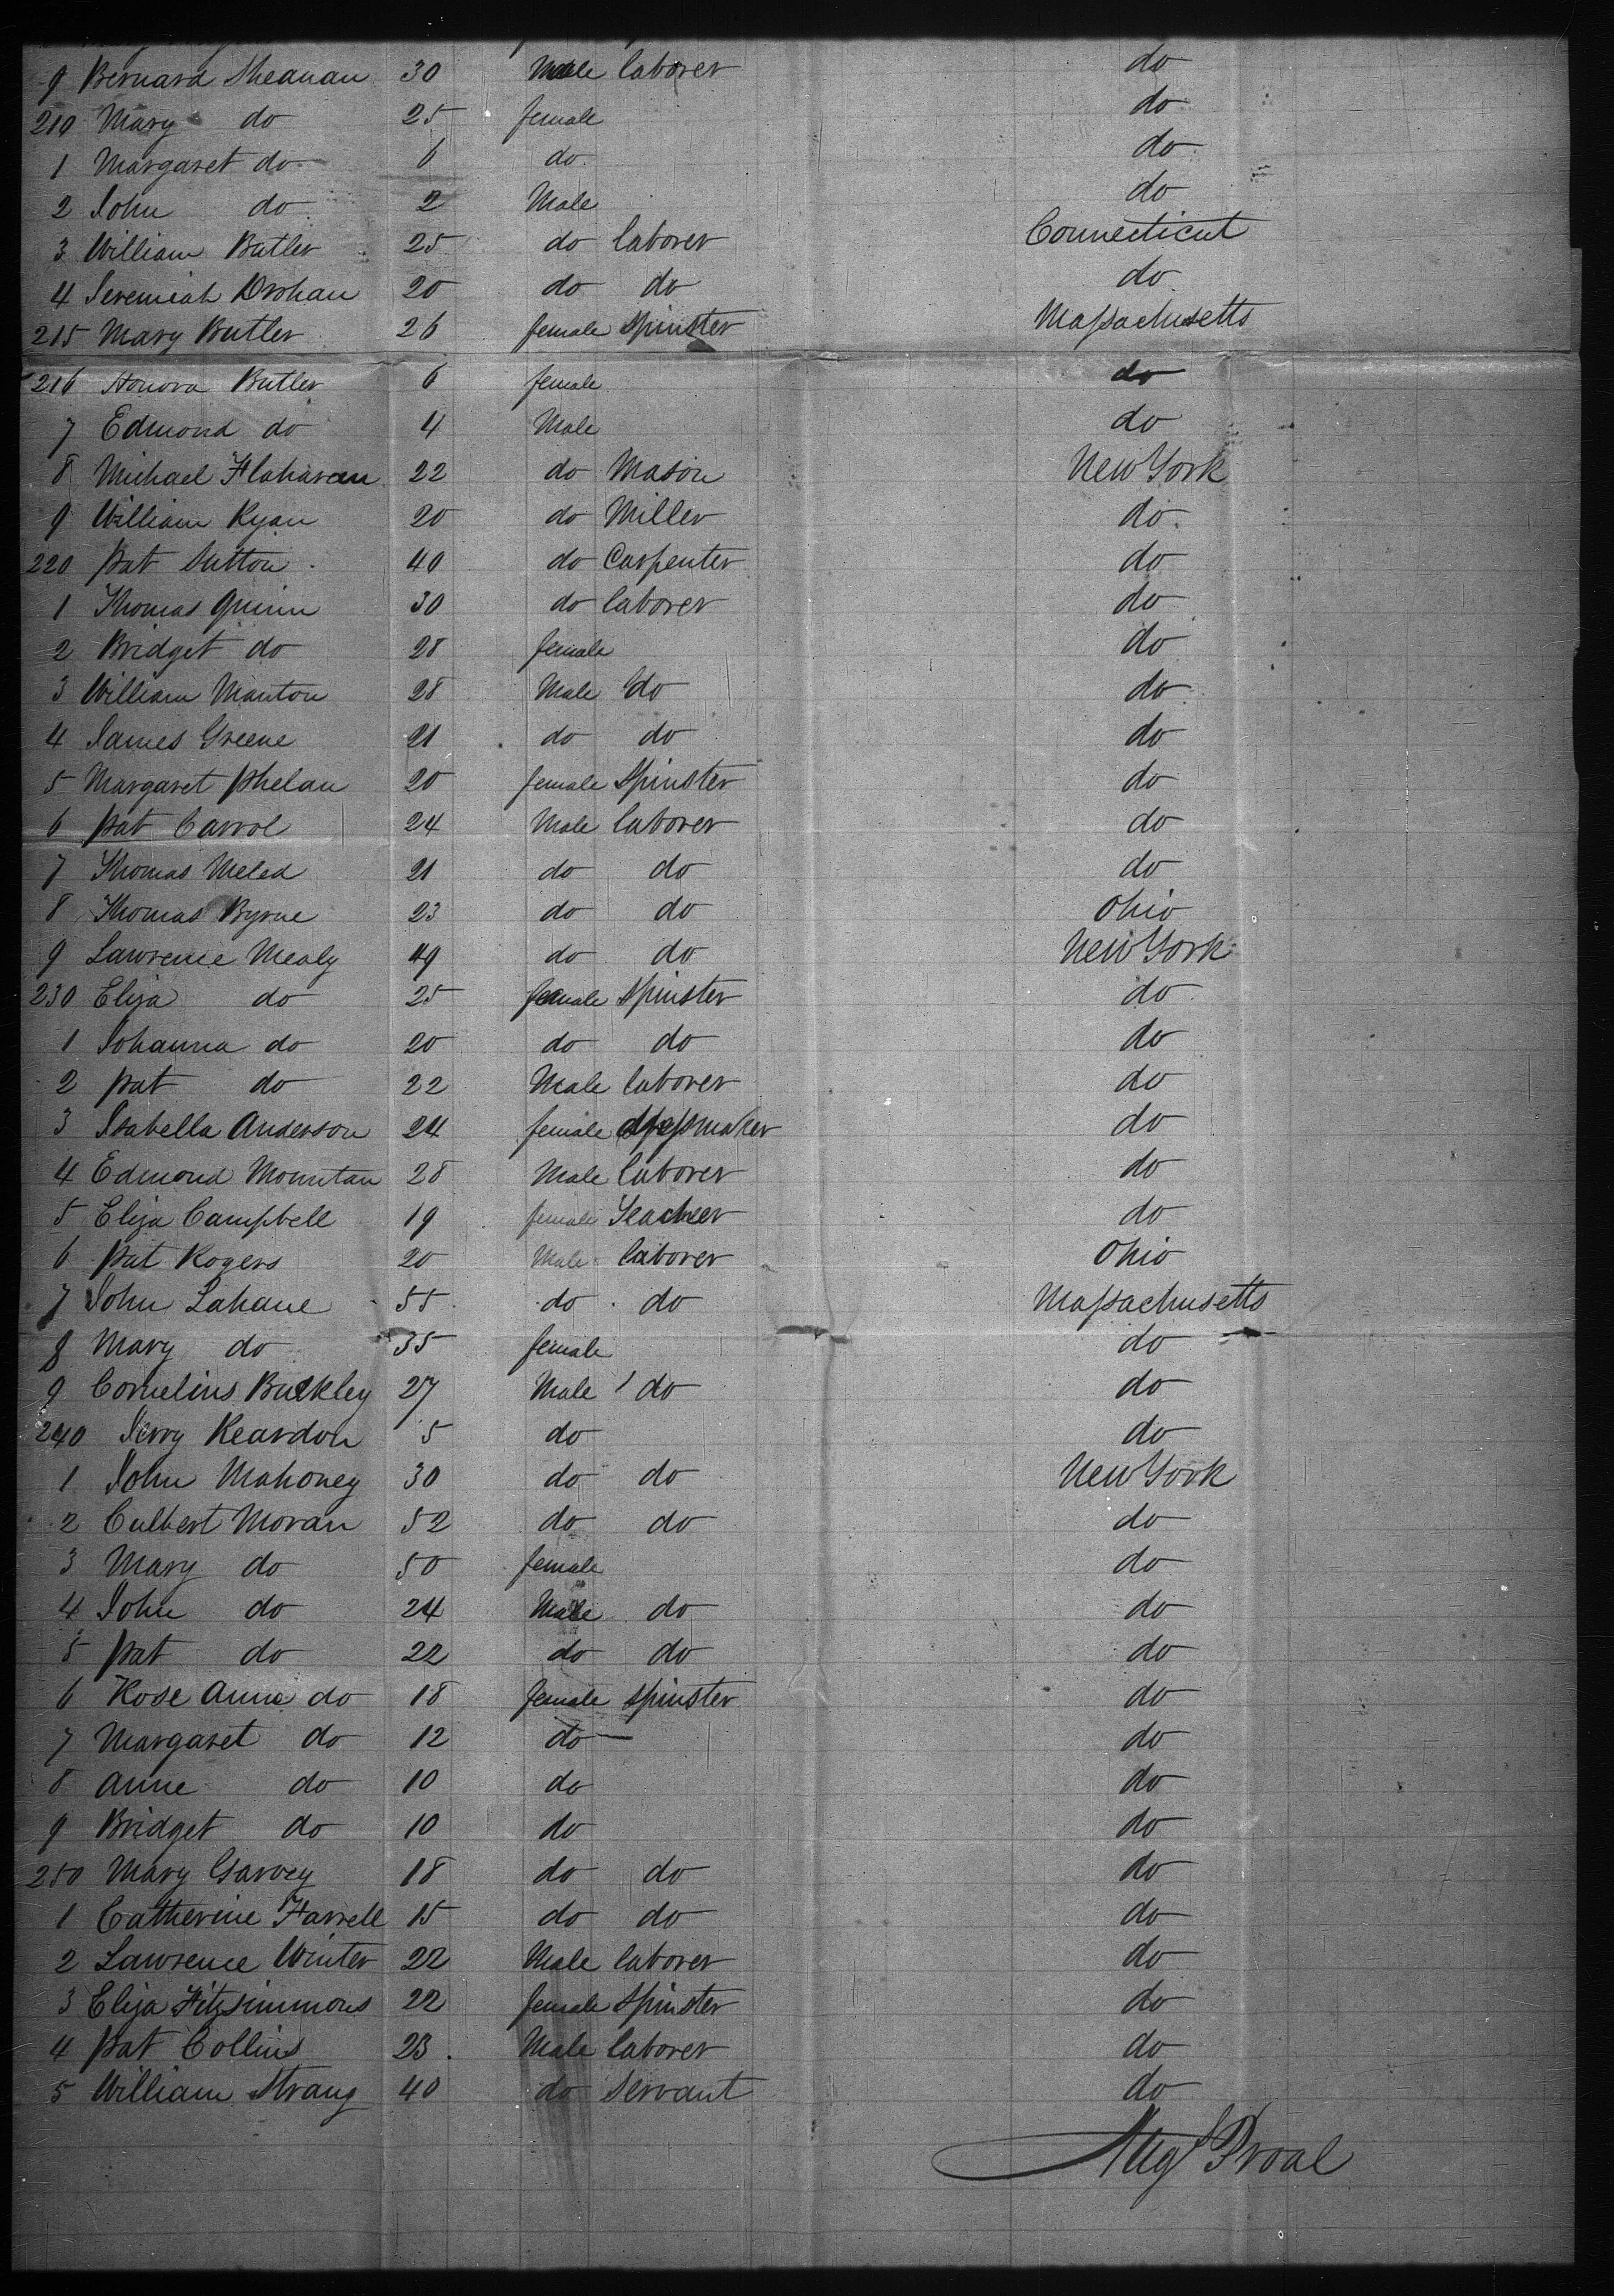 9 Bernard Sheanan 30 Male laborer do
210 Mary do 25 female do
1 Margaret do 6 do do
2 John do 2 Male do
3 William Butler 25 do laborer Connecticut
4 Jeremiah Drohan 20 do do do
215 Mary Butler 26 female Spinster Massachusetts
216 Honora Butler 6 female do
7 Edmond do 4 Male do
8 Michael Flahavan 22 do Mason New York
9 William Ryan 20 do Miller do
220 Pat Sutton 40 do Carpenter do
1 Thomas Quinn 30 do laborer do
2 Bridget do 28 female do
3 William Manton 28 Male do do
4 James Greene 21 do do do
5 Margaret Phelan 20 female Spinster do
6 Pat Carrol 24 Male laborer do
7 Thomas Melea 21 do do do
8 Thomas Byrne 23 do do Ohio
9 Lawrence Mealy 49 do do New York
230 Eliza do 25 female Spinster do
1 Johanna do 20 do do do
2 Pat do 22 Male laborer do
3 Isabella Anderson 24 female dressmaker do
4 Edmond Mountan 28 Male laborer do
5 Eliza Campbell 19 female Teacher do
6 Pat Rogers 20 Male laborer Ohio
7 John Lahane 55 do do Massachusetts
8 Mary do 35 female do
9 Cornelius Buckley 27 Male do do
240 Jerry Reardon 5 do do
1 John Mahoney 30 do do New York
2 Culbert Moran 52 do do do
3 Mary do 50 female do
4 John do 24 Male do do
5 Pat do 22 do do do
6 Rose Anna do 18 female Spinster do
7 Margaret do 12 do do
8 Anne do 10 do do
9 Bridget do 10 do do
250 Mary Garvey 18 do do do
1 Catherine Farrell 15 do do do
2 Lawrence Winter 22 Male laborer do
3 Eliza Fitzsimmons 22 female Spinster do
4 Pat Collins 23 Male laborer do
5 William Strang 40 do Servant do
Augs Proal